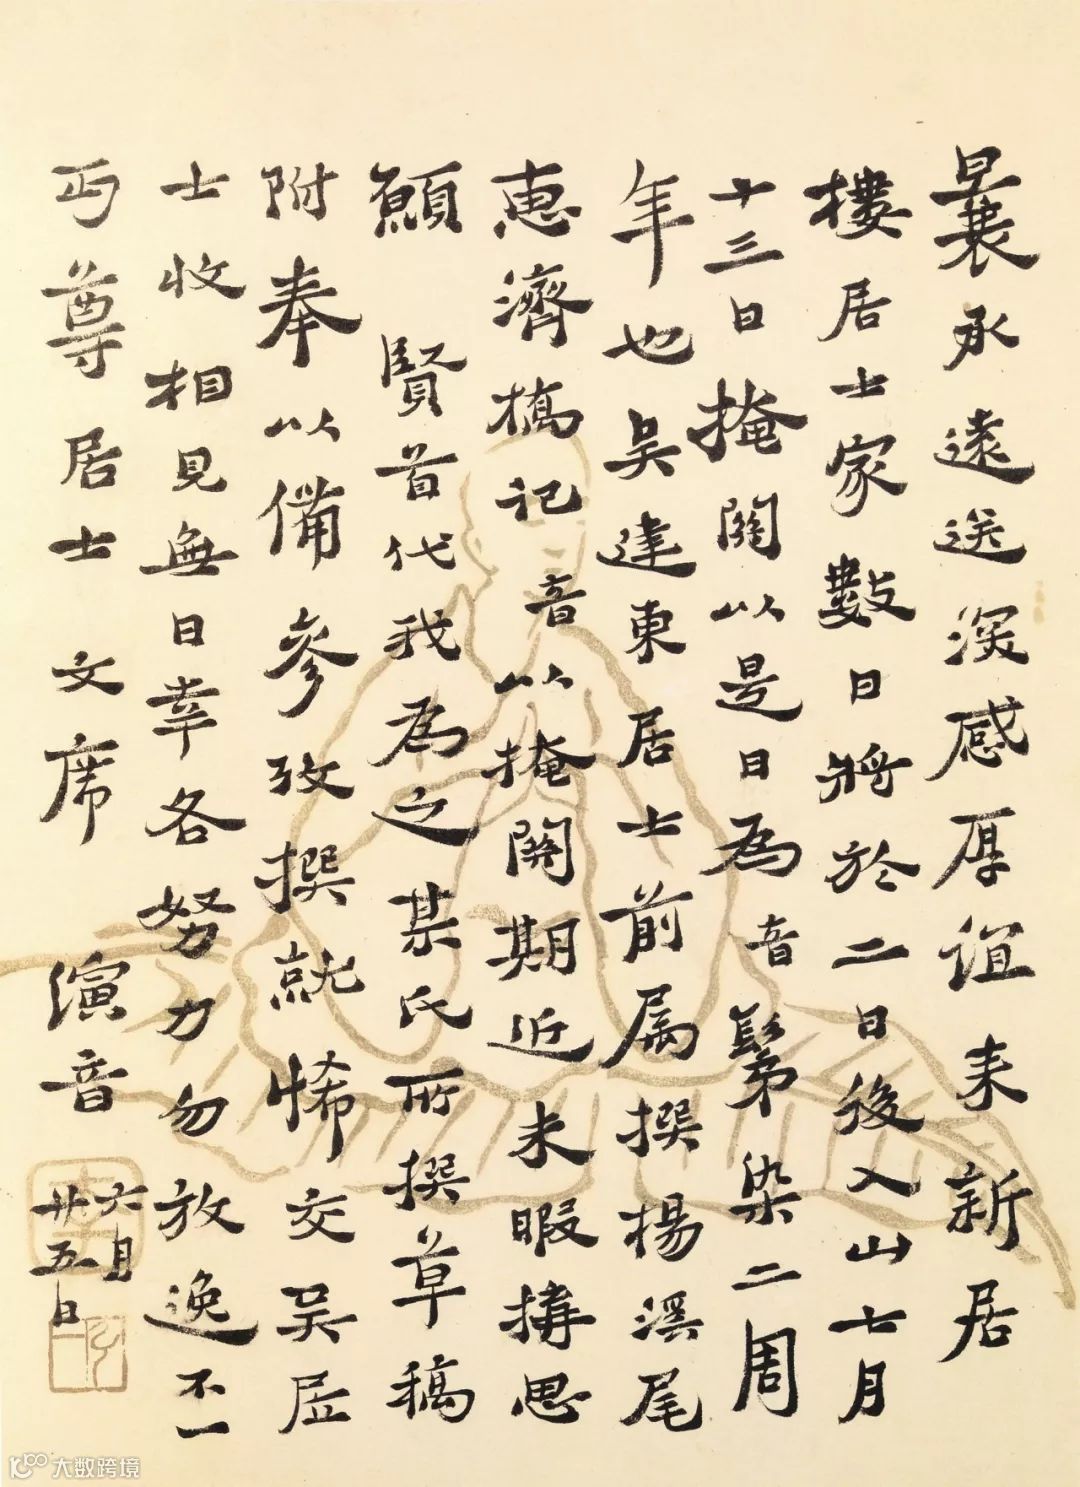 曩承遠送深感厚誼来新居
樓居士家數日將於二日後入山七月
十三日掩關以是日為音鬀染二周
年也吴建東居士前属撰揚溪尾
恵濟槗記音以掩關期近未暇搆思
願賢首代我為之某氏所撰草稿
附奉以備參攷撰就悕交吴居
士收相見無日幸各努力勿放逸不一
丏尊居士文席 演音 六月廿五日
大数跨境